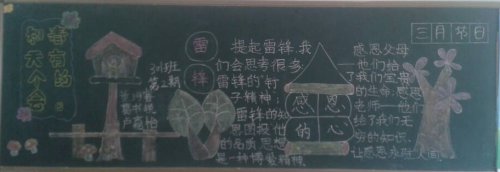 春有约
和大个会
311班
第2期
雷
锋
提起雷锋,我
们会思考很多
雷锋的“钉
子精神;
雷锋的知
恩图报他
的品质思想
是一种博爱精神.
感恩
的心
三月节日
感恩父母
—他们给
了我们宝贵
的生命:感恩
老师—他们
给了我们无
穷的知识.
让感恩永驻人间.